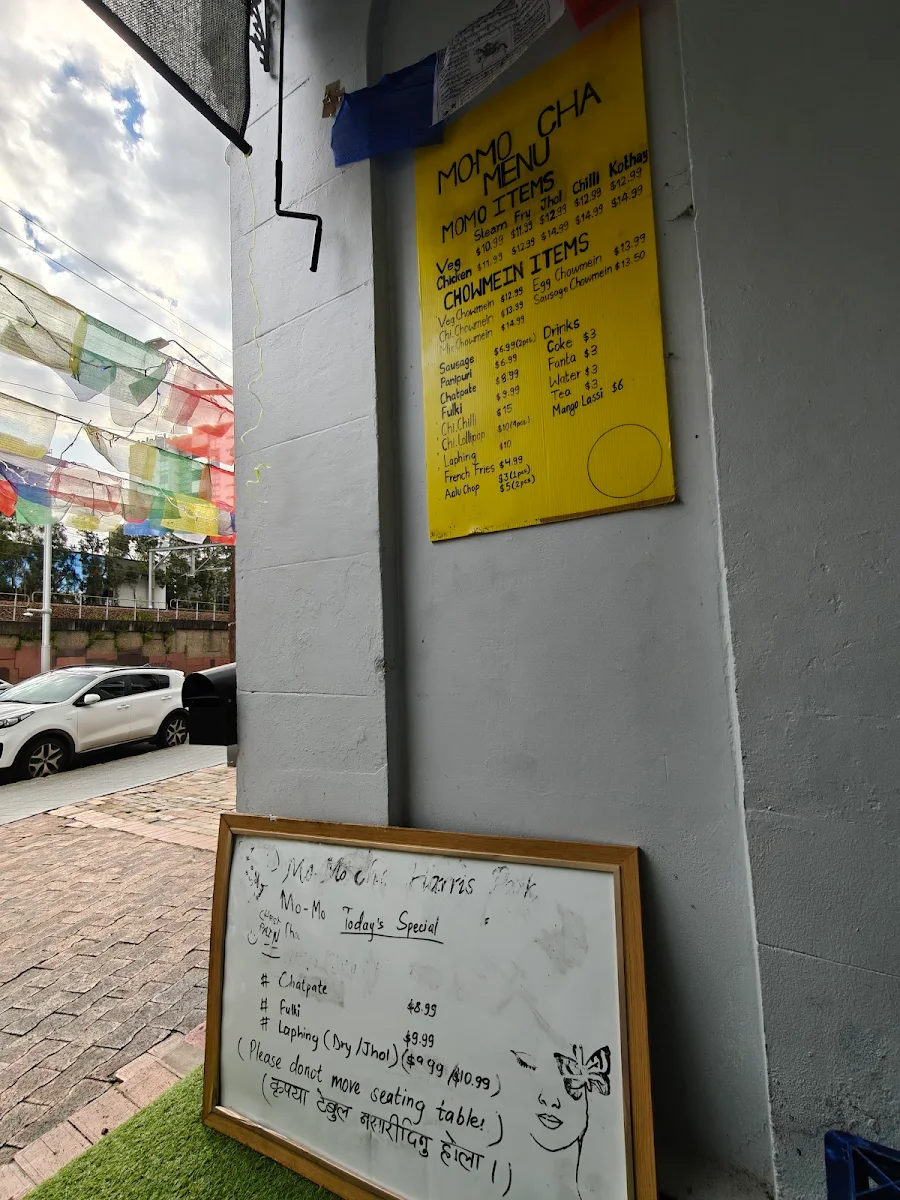 MOMO CHA
MENU
MOMO ITEMS
Steam Fry Jhol Chilli Kothay
Veg $10.99 $11.99 $12.99 $12.99 $12.99
Chicken $11.99 $12.99 $14.99 $14.99 $14.99
CHOWMEIN ITEMS
Veg Chowmein $12.99 Egg Chowmein $13.99
Chi. Chowmein $13.99 Sausage Chowmein $13.50
Mix Chowmein $14.99
Sausage $6.99(2pcs)
Panipuri $6.99
Chatpate $8.99
Fulki $9.99
Chi. Chilli $15
Chi. Lollipop $10(4pcs)
Laphing $10
French Fries $4.99
Aalu Chop $3(1pcs)
$5(2pcs)
Drinks
Coke $3
Fanta $3
Water $3
Tea $3
Mango Lassi $6
Mo-Mo cha Harris Park
Mo-Mo
Today's Special
# Chatpate $8.99
# Fulki $9.99
# Laphing (Dry/Jhol) ($9.99/$10.99)
(Please donot move seating table!)
(कृपया टेबुल नसारीदिनु होला।)